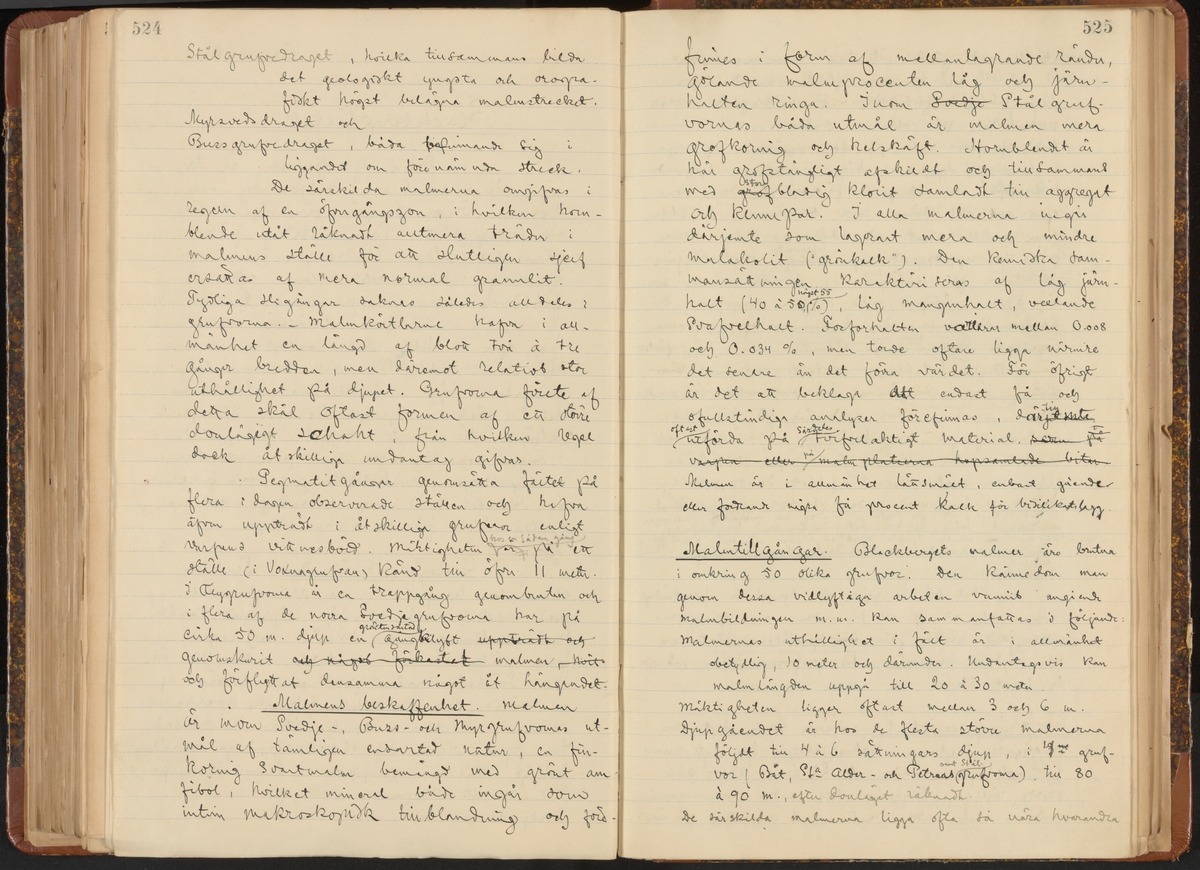 524
Stålgrufvedraget, hvilka tillsammans bilda
det geologiskt yngsta och orogra-
fiskt högst belägna malmstrecket.
Myrsvedsdraget och
Bussgrufvedraget, båda befinnande sig i
liggandet om förenämnda streck.
De särskilda malmerna omgifvas i
regeln af en öfvergångszon, i hvilken horn-
blende utåt räknadt alltmera träder i
malmens ställe för att slutligen sjelf
ersättas af mera normal granulit.
Tydliga sligångar saknas således alldeles i
grufvorna. – Malmkörtlarne hafva i all-
mänhet en längd af blott två à tre
gånger bredden, men däremot relativt stor
uthållighet på djupet. Grufvorna förete af
detta skäl oftast formen af ett större
donlägigt schakt, från hvilken regel
dock åtskilliga undantag gifvas.
Pegmatitgångar genomsätta fältet på
flera i dagen observerade ställen och hafva
äfven uppträdt i åtskilliga grufvor enligt
varpens vittnesbörd. Mäktigheten hos en sådan gång är på ett
ställe (i Voxnagrufvan) känd till öfver 11 meter.
I Tegrufvorna är en trappgång genombruten och
i flera af de norra Svedjegrufvorna har på
cirka 50 m. djup en grönstensartad gångklyft uppträdt och
genomskurit och något förkastat malmen
och förflyttat densamma något åt hängandet.
Malmens beskaffenhet. Malmen
är inom Svedje-, Buss- och Myrgrufvornas ut-
mål af tämligen enhetlig natur, en fin-
kornig svartmalm bemängd med grönt am-
fibol, hvilket mineral både ingår som
intim makroskopisk tillblandning och förd-
525
finnes i form af mellanlagrande ränder,
görande malmprocenten låg och järn-
halten ringa. Inom Svedje Stålgruf-
vornas båda utmål är malmen mera
grofkornig och helskäft. Hornblendet är
här grofstängligt afskildt och tillsammans
med stor grof bladig klorit samladt till aggregat
och klimpar. I alla malmerna ingår
därjemte som lagrart mera och mindre
malakolit ("grönkalk"). Den kemiska sam-
mansättningen karaktäriseras af låg järn-
halt (40 à 50, högst 55 %), låg manganhalt, vexlande
svafvelhalt. Fosforhalten vexlar mellan 0.008
och 0.034 %, men torde oftare ligga närmre
det senare än det förra värdet. För öfrigt
är det att beklaga att endast få och
ofullständiga analyser förefinnas, därtill
oftast utförda på särdeles tvifvelaktigt material. som på
varpen eller på malmplatserna hopsamlade bitar.
Malmen är i allmänhet lättsmält, enbart gående
eller fordrande några få procent kalk för bisilikatslagg.
Malmtillgångar. Blackbergets malmer äro brutna
i omkring 50 olika grufvor. Den kännedom man
genom dessa vidlyftiga arbeten vunnit angående
malmbildningen m. m. kan sammanfattas i följande:
Malmernas uthållighet i fält är i allmänhet
obetydlig, 10 meter och därunder. Undantagsvis kan
malmlängden uppgå till 20 à 30 meter
Mäktigheten ligger oftast mellan 3 och 6 m.
Djupgåendet är hos de flesta större malmerna
följdt till 4 à 6 sättningars djup, i några gruf-
vor (Båt, Sta Alder- och Petreas samt Stålgrufvorna) till 80
à 90 m., efter donläget räknadt.
De särskilda malmerna ligga ofta så nära hvarandra